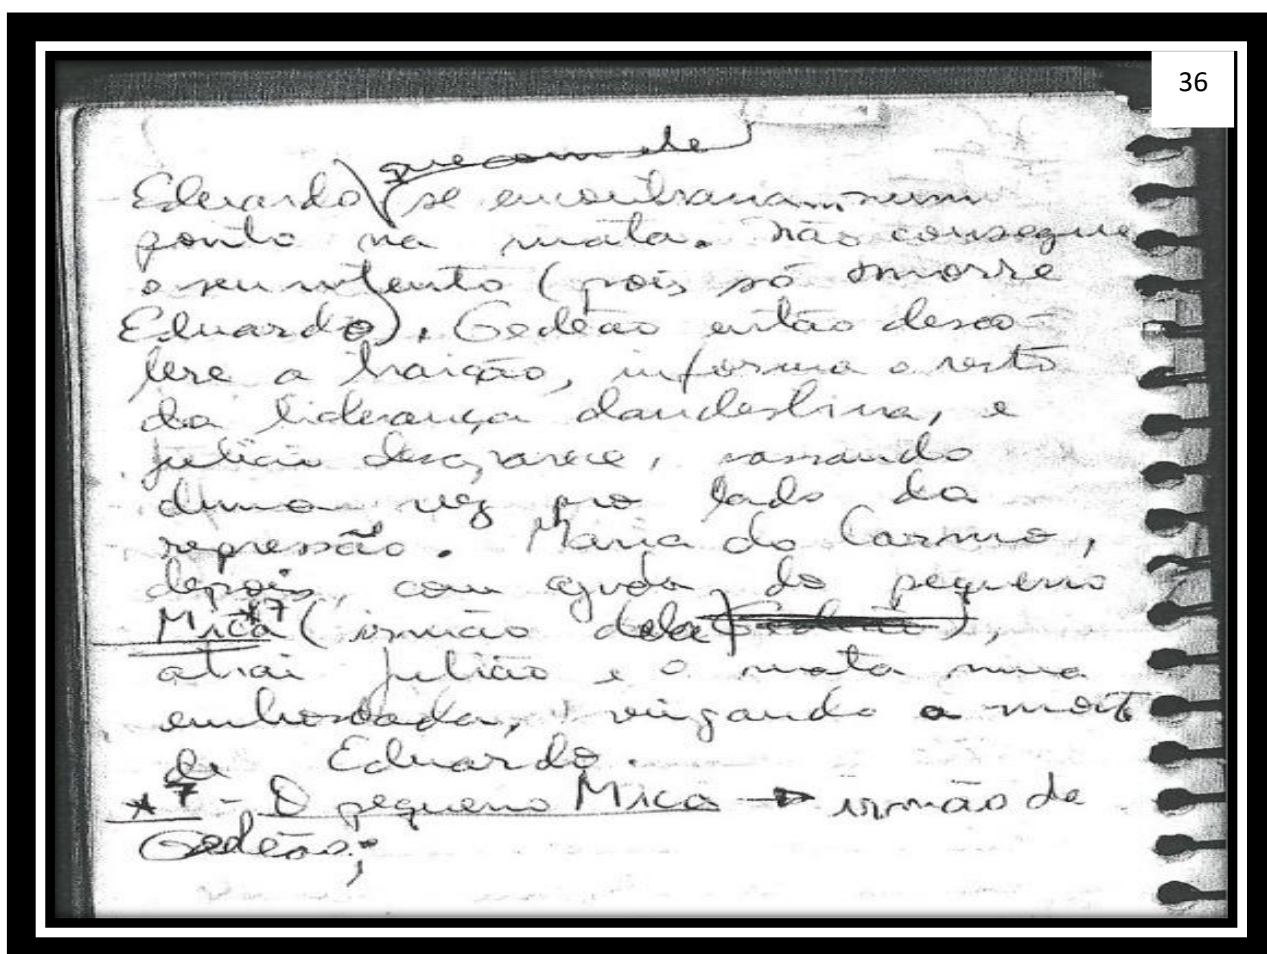 36
que com ele
Eduardo (se encontrariam num
ponto na mata. Não consegue
o seu intento (pois só morre
Eduardo). Gedeão então desco-
bre a traição, informa o resto
da liderança clandestina, e
Julião desaparece, passando
duma vez pro lado da
repressão. Maria do Carmo,
depois, com ajuda do pequeno
Mica *7 (irmão dela),
atrai Julião e o mata numa
emboscada, vingando a morte
de Eduardo.
*7 - O pequeno Mica → irmão de
Gedeão;